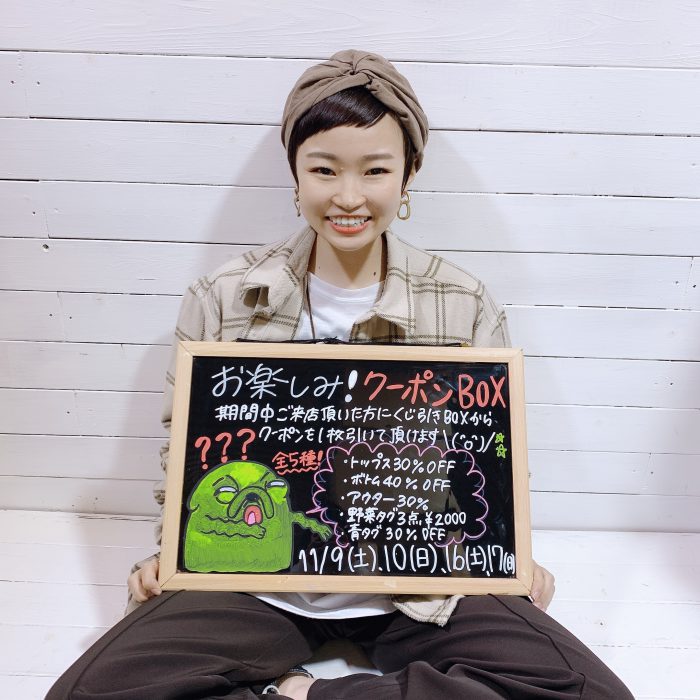 お楽しみ!クーポンBOX
期間中ご来店頂いた方にくじ引きBOXから
クーポンを1枚引いて頂けます\(^o^)/☆
???
全5種!
・トップス30%OFF
・ボトム40%OFF
・アウター30%
・野菜タグ3点¥2000
・青タグ30%OFF
11/9(土)、10(日)、16(土)、17(日)